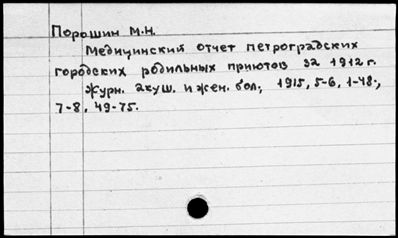 Порошин М.Н.
Медицинский отчет петроградских
городских родильных приютов за 1912 г.
Журн. акуш. и жен. бол., 1915, 5-6, 1-48.,
7-8, 49-75.